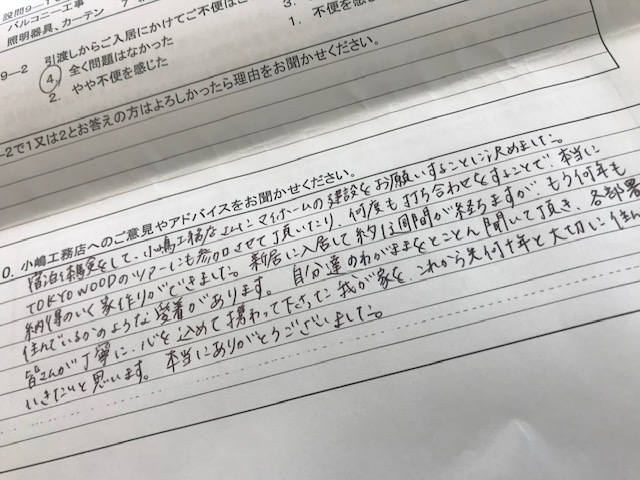 設問9-1
バルコニー工事
照明器具、カーテン 7
9-2 引渡しからご入居にかけてご不便は
④ 全く問題はなかった
2. やや不便を感じた
1. 不便を感
-2で1又は2とお答えの方はよろしかったら理由をお聞かせください。
0. 小嶋工務店へのご意見やアドバイスをお聞かせください。
宿泊体験をして、小嶋工務店さんにマイホームの建設をお願いすることに決めました。
TOKYO WOODのツアーにも参加させて頂いたり、何度も打ち合わせをすることで、本当に
納得のいく家作りができました。新居に入居して約1週間が経ちますが、もう何年も
住んでいるかのような愛着があります。自分達のわがままをとことん聞いて頂き、各部署
皆さんが丁寧に、心を込めて携わって下さった我が家を、これから先何十年と大切に住
いきたいと思います。本当にありがとうございました。